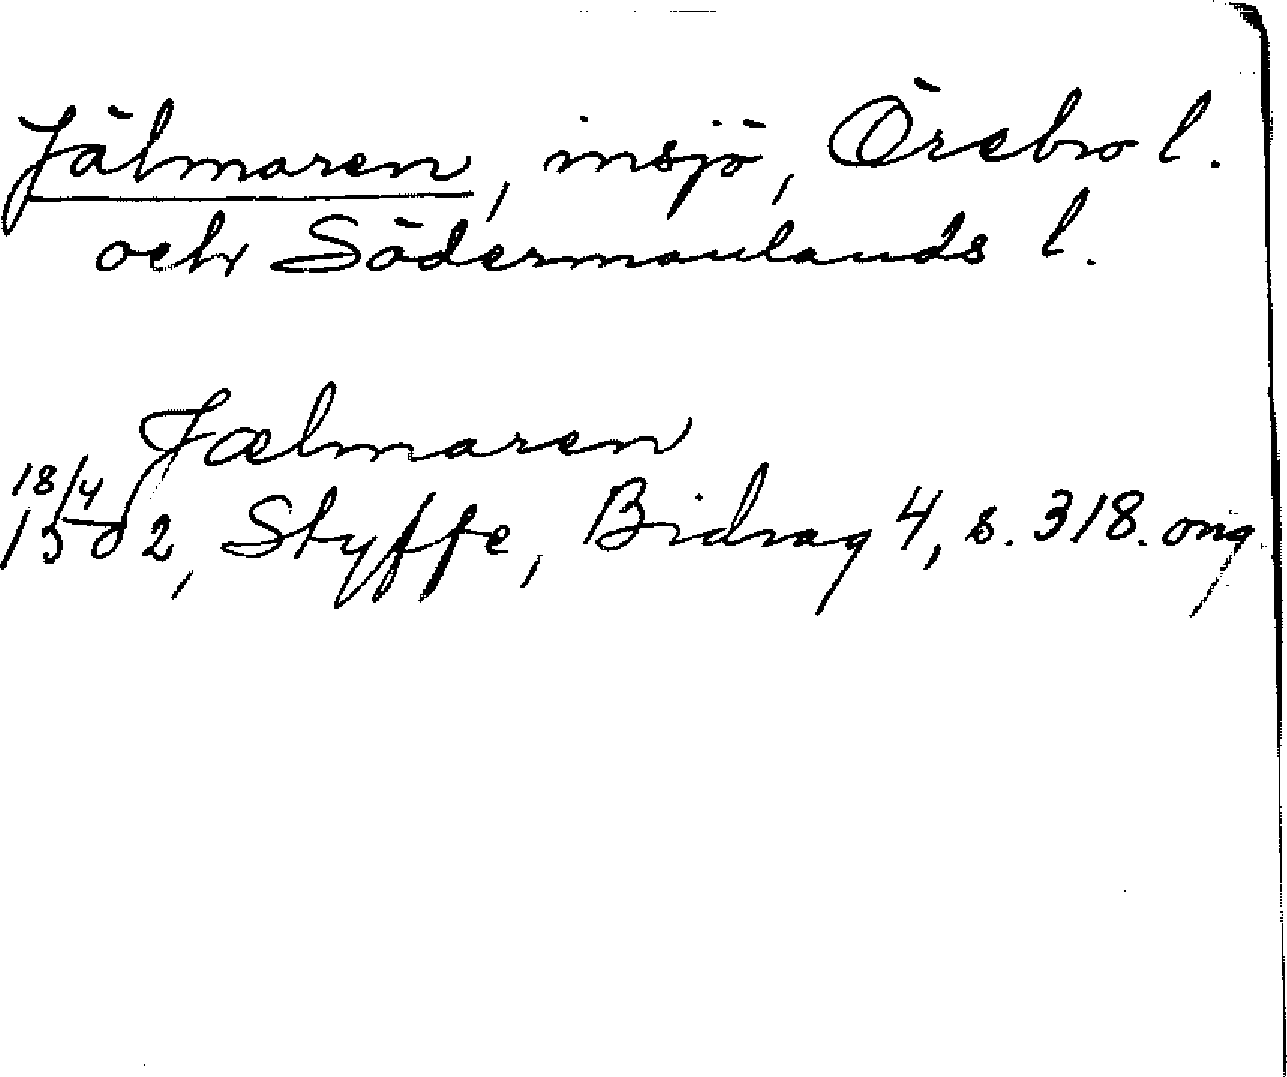 Jälmaren, insjö, Örebro l.
och Södermanlands l.
Jælmaren
18/4
1502, Styffe, Bidrag 4, s. 318. orig